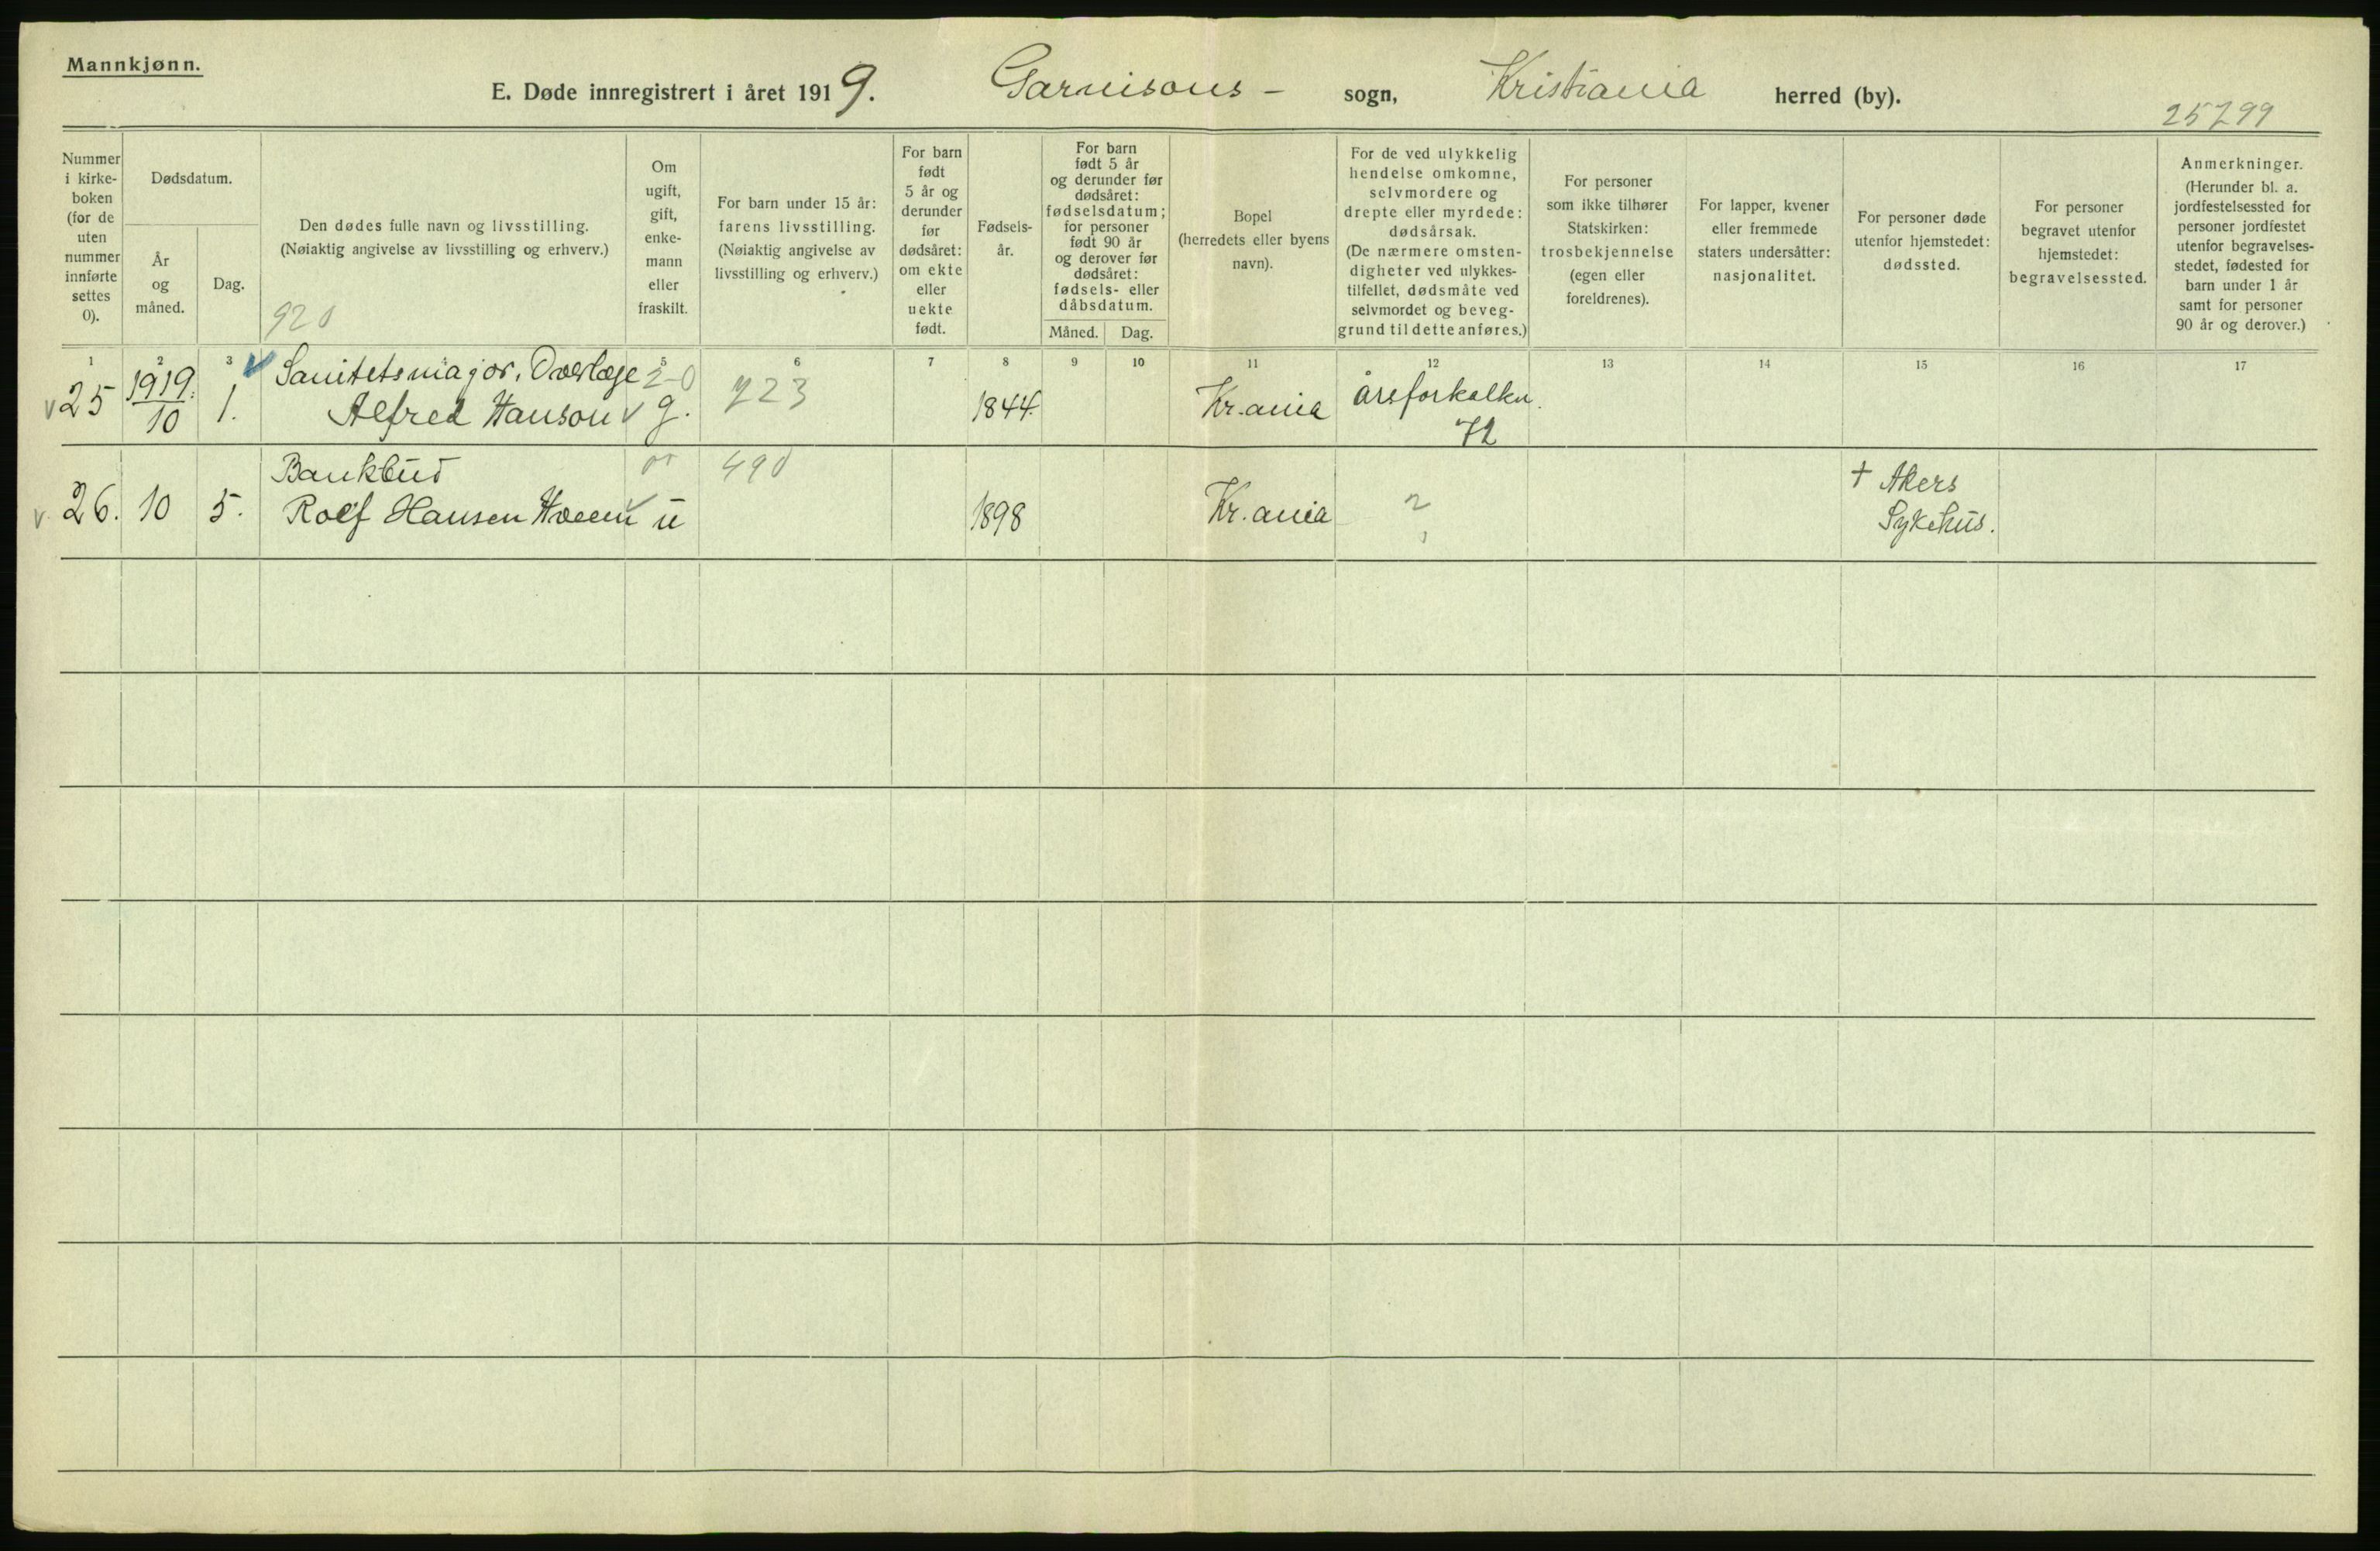 Mannkjønn.
E. Døde innregistrert i året 1919. Garnisons- sogn, Kristiania herred (by).
25299
Nummer i kirke-boken (for de uten nummer innførte settes 0).
Dødsdatum.
År og måned.
Dag.
Den dødes fulle navn og livsstilling.
(Nøiaktig angivelse av livsstilling og erhverv.)
920
Om ugift, gift, enke-mann eller fraskilt.
For barn under 15 år: farens livsstilling.
(Nøiaktig angivelse av livsstilling og erhverv.)
For barn født 5 år og derunder før dødsåret: om ekte eller uekte født.
Fødsels-år.
For barn født 5 år og derunder før dødsåret: fødselsdatum; for personer født 90 år og derover før dødsåret: fødsels- eller dåbsdatum.
Måned. Dag.
Bopel
(herredets eller byens navn).
For de ved ulykkelig hendelse omkomne, selvmordere og drepte eller myrdede: dødsårsak.
(De nærmere omsten-digheter ved ulykkes-tilfellet, dødsmåte ved selvmordet og beveg-grund til dette anføres.)
For personer som ikke tilhører Statskirken: trosbekjennelse
(egen eller foreldrenes).
For lapper, kvener eller fremmede staters undersåtter: nasjonalitet.
For personer døde utenfor hjemstedet: dødssted.
For personer begravet utenfor hjemstedet: begravelsessted.
Anmerkninger.
(Herunder bl. a. jordfestelsessted for personer jordfestet utenfor begravelses-stedet, fødested for barn under 1 år samt for personer 90 år og derover.)
1 2 3 5 6 7 8 9 10 11 12 13 14 15 16 17
Sanitetsmajor, Overlæge 2-0
25 1919. 10 1. Alfred Hanson g. 723 1844. Kr.ania årsforkalkn. 72
Bankbud 490 + Akers
26. 10 5. Rolf Hansen u 1898 Kr.ania ? Sykehus.